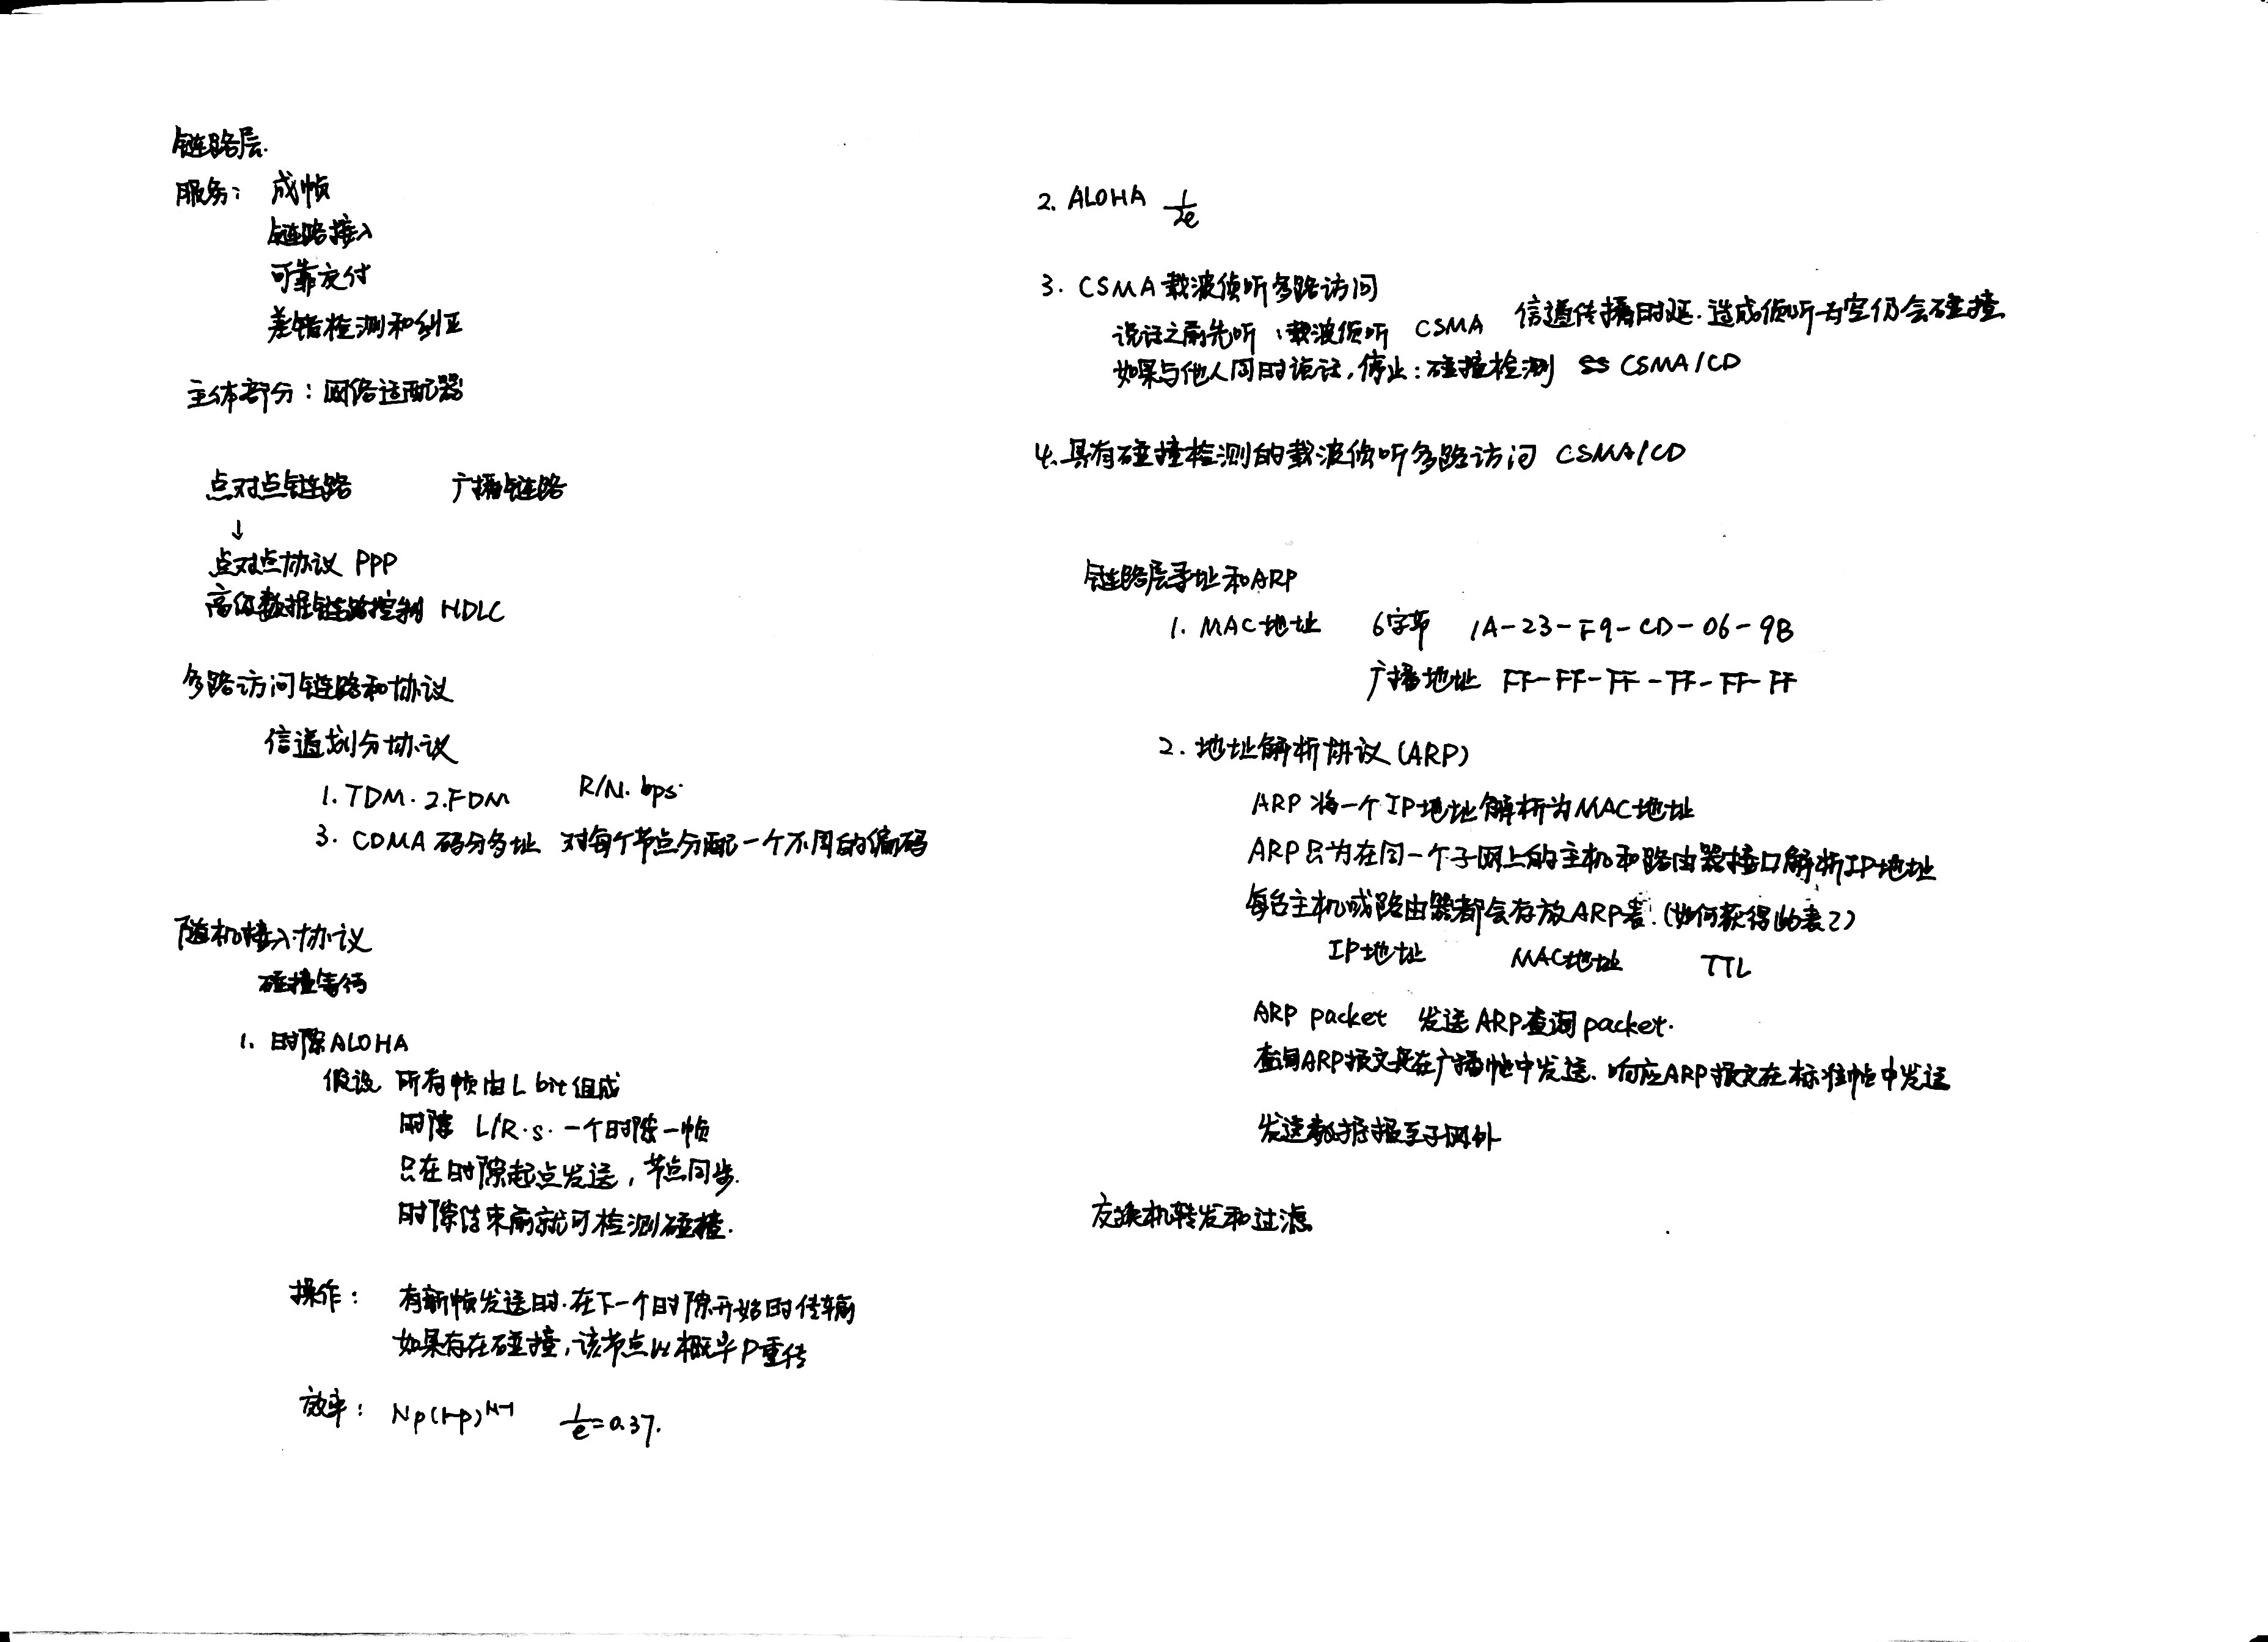 链路层.
服务: 成帧
链路接入
可靠交付
差错检测和纠正
主体部分: 网络适配器
点对点链路 广播链路
↓
点对点协议 PPP
高级数据链路控制 HDLC
多路访问链路和协议
信道划分协议
1. TDM. 2. FDM R/N. bps.
3. CDMA 码分多址 对每个节点分配一个不同的编码
随机接入协议
碰撞等待
1. 时隙ALOHA
假设 所有帧由L bit组成
时隙 L/R·s. 一个时隙一帧
只在时隙起点发送, 节点同步.
时隙结束前就可检测碰撞.
操作: 有新帧发送时.在下一个时隙开始时传输
如果存在碰撞,该节点以概率P重传
效率: Np(1-p)^{N-1} 1/e=0.37.
2. ALOHA 1/2e
3. CSMA 载波侦听多路访问
说话之前先听:载波侦听 CSMA 信道传播时延.造成侦听为空仍会碰撞.
如果与他人同时说话,停止:碰撞检测 CSMA/CD
4. 具有碰撞检测的载波侦听多路访问 CSMA/CD
链路层寻址和ARP
1. MAC地址 6字节 1A-23-F9-CD-06-9B
广播地址 FF-FF-FF-FF-FF-FF
2. 地址解析协议(ARP)
ARP 将一个IP地址解析为MAC地址
ARP只为在同一个子网上的主机和路由器接口解析IP地址
每台主机或路由器都会存放ARP表.(如何获得此表?)
IP地址 MAC地址 TTL
ARP packet 发送ARP查询packet.
查询ARP报文是在广播帧中发送.响应ARP报文在标准帧中发送
发送数据报至子网外
交换机转发和过滤